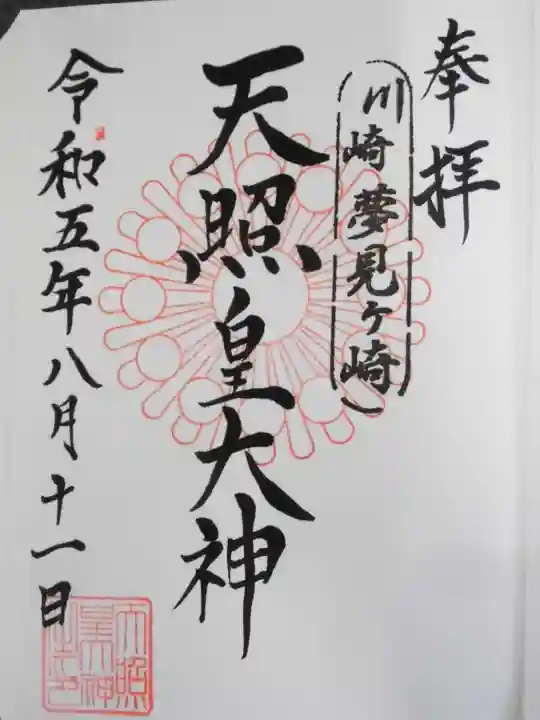 奉拝
（川崎夢見ヶ崎）
天照皇大神
令和五年八月十一日